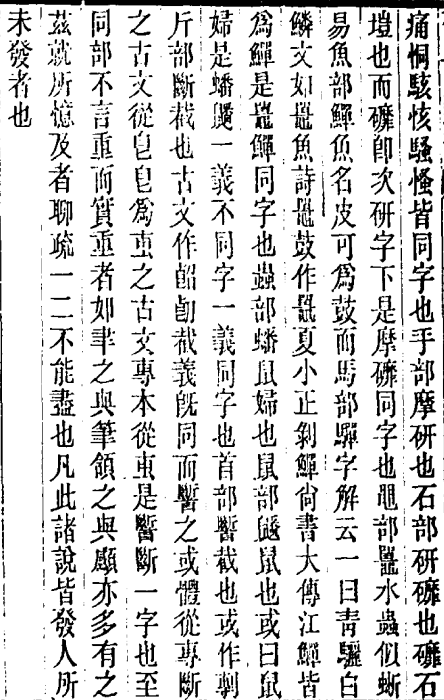 痛恫駭恔騷慅皆同字也手部摩研也石部研䃺也䃺石
磑也而䃺卽次研字下是摩䃺同字也黽部鼉水蟲似蜥
易魚部鱓魚名皮可爲鼓而馬部驒字解云一曰靑驪白
鱗文如鼉魚詩鼉鼓作鼉夏小正剝鱓尙書大傳江鱓皆
爲鱓是鼉鱓同字也蟲部蟠鼠婦也鼠部鼶鼠也或曰鼠
婦是蟠一義不同字一義同字也首部𩠹截也或作剸
斤部斷截也古文作𠸿𠤎截義旣同而𩠹之或體從專斷
之古文從𠧢𠧢爲叀之古文專本從叀是𩠹斷一字也至
同部不言重而實重者如聿之與筆頟之與顱亦多有之
茲就所憶及者聊疏一二不能盡也凡此諸說皆發人所
未發者也